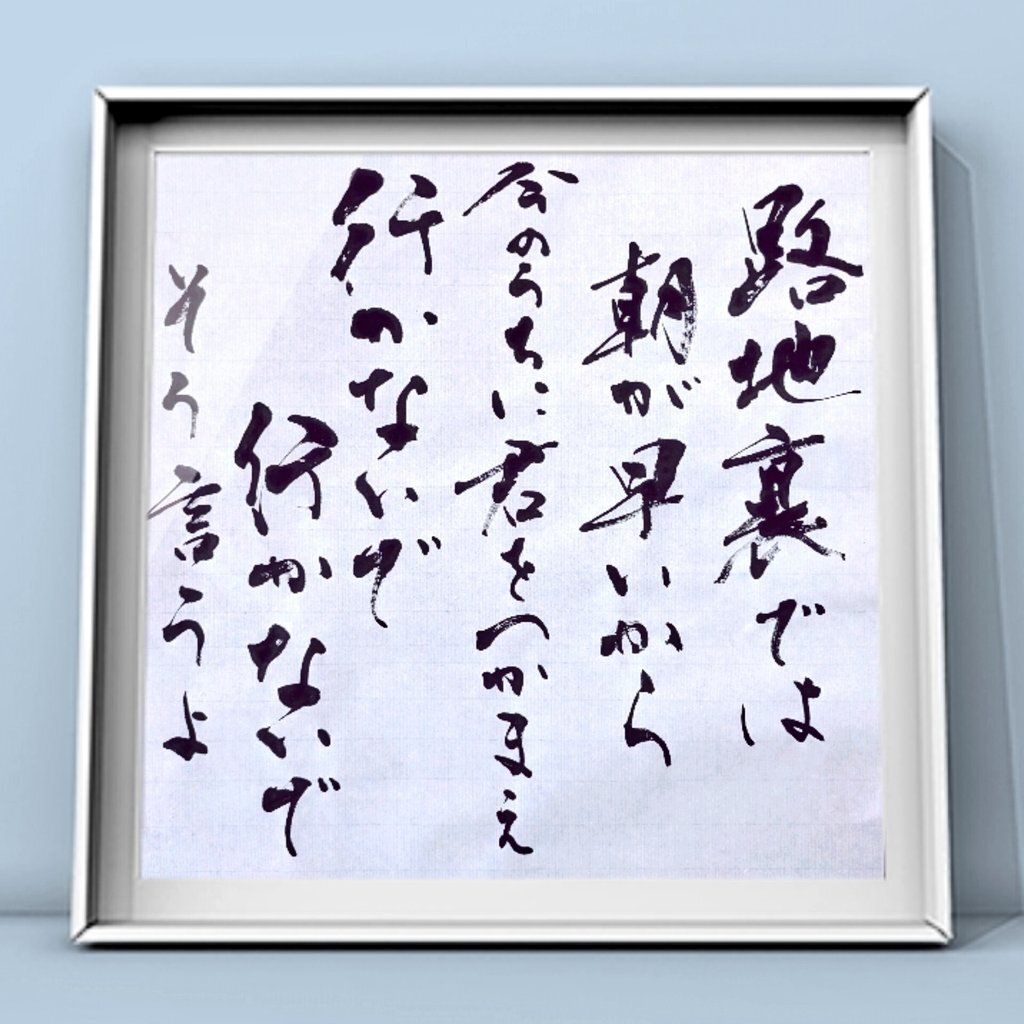 路地裏では
朝が早いから
今のうちに君をつかまえ
行かないで
行かないで
そう言うよ